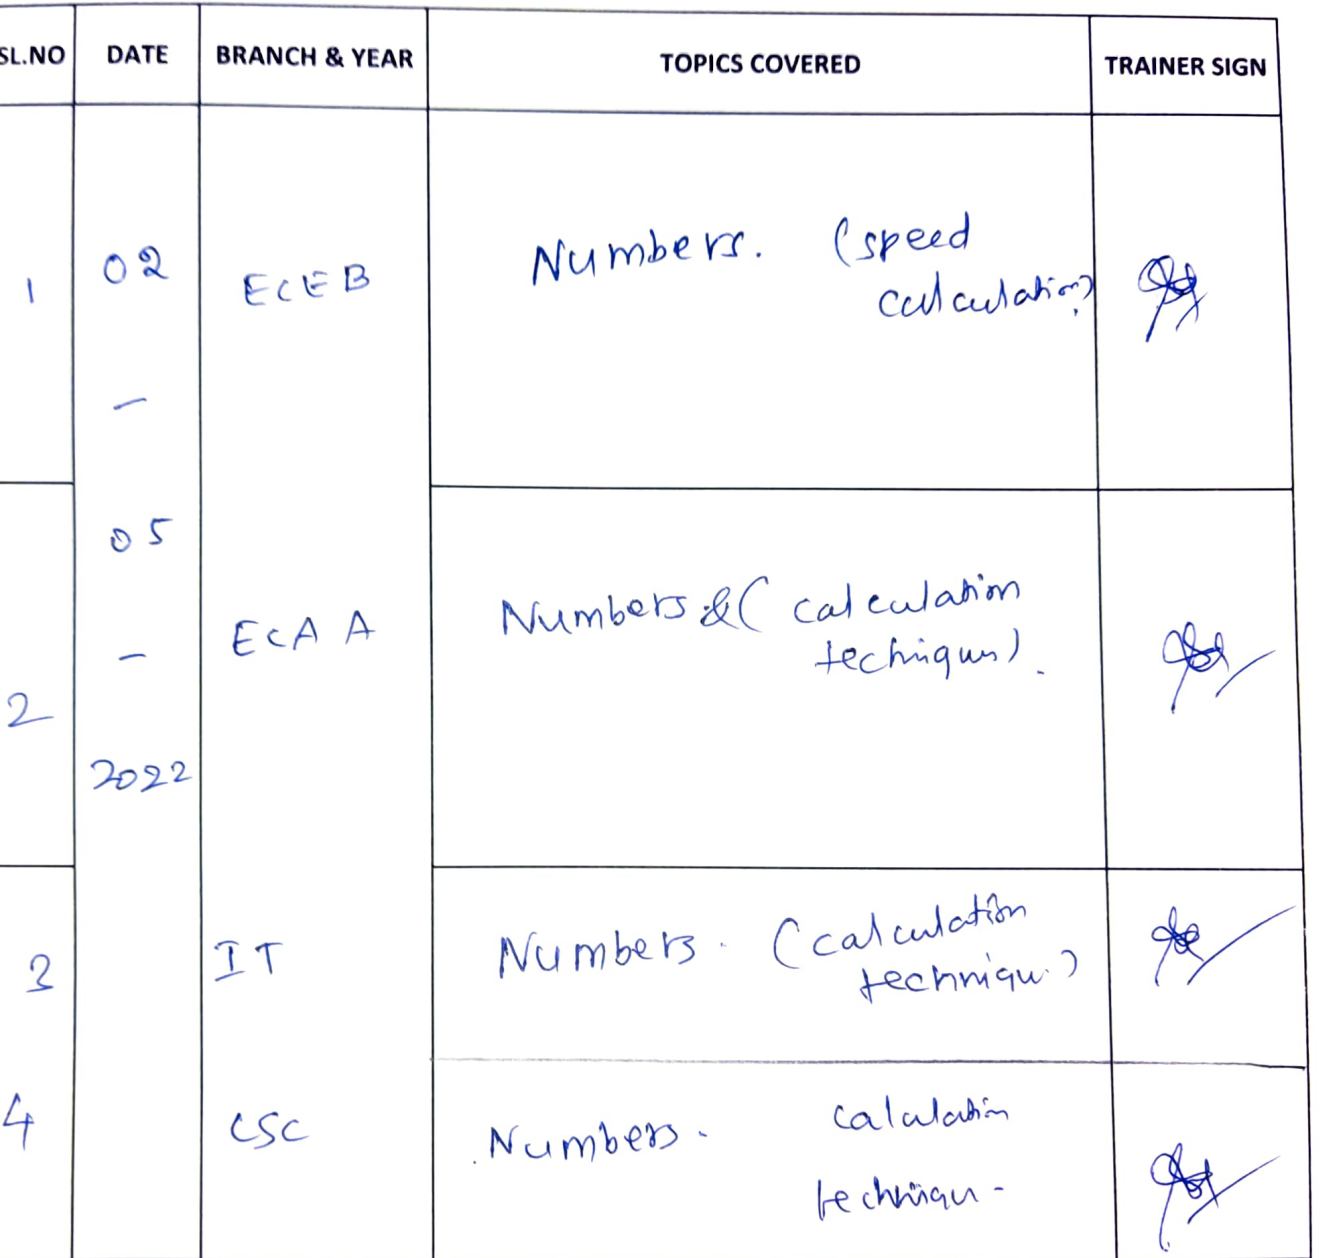 SL.NO DATE BRANCH & YEAR TOPICS COVERED TRAINER SIGN
1 02 ECEB Numbers. (speed
calculation)
-
05
2 - ECA A Numbers & (calculation
techniques).
2022
3 IT Numbers. (calculation
technique.)
4 CSC Numbers. Calculation
technique -